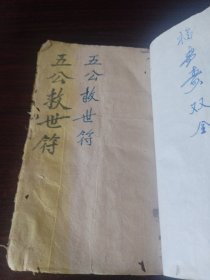 福寿双全
五公救世符
五公救世符